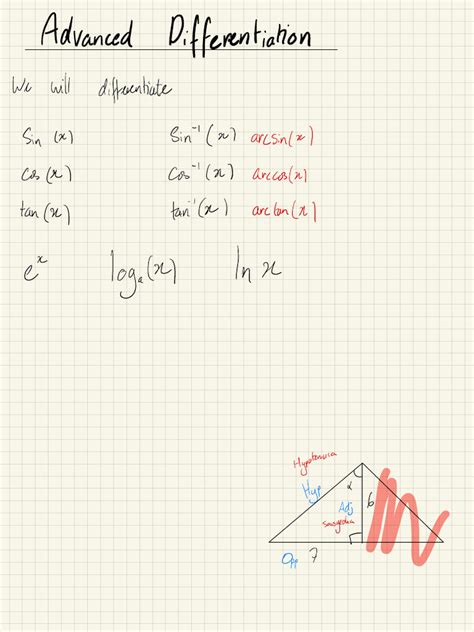 Advanced Differentiation
We will differentiate
Sin (x) Sin⁻¹(x) arcsin(x)
Cos (x) Cos⁻¹(x) arccos(x)
tan (x) tan⁻¹(x) arctan(x)
eˣ logₐ(x) ln x
Hyp α
Adj 6
Opp 7